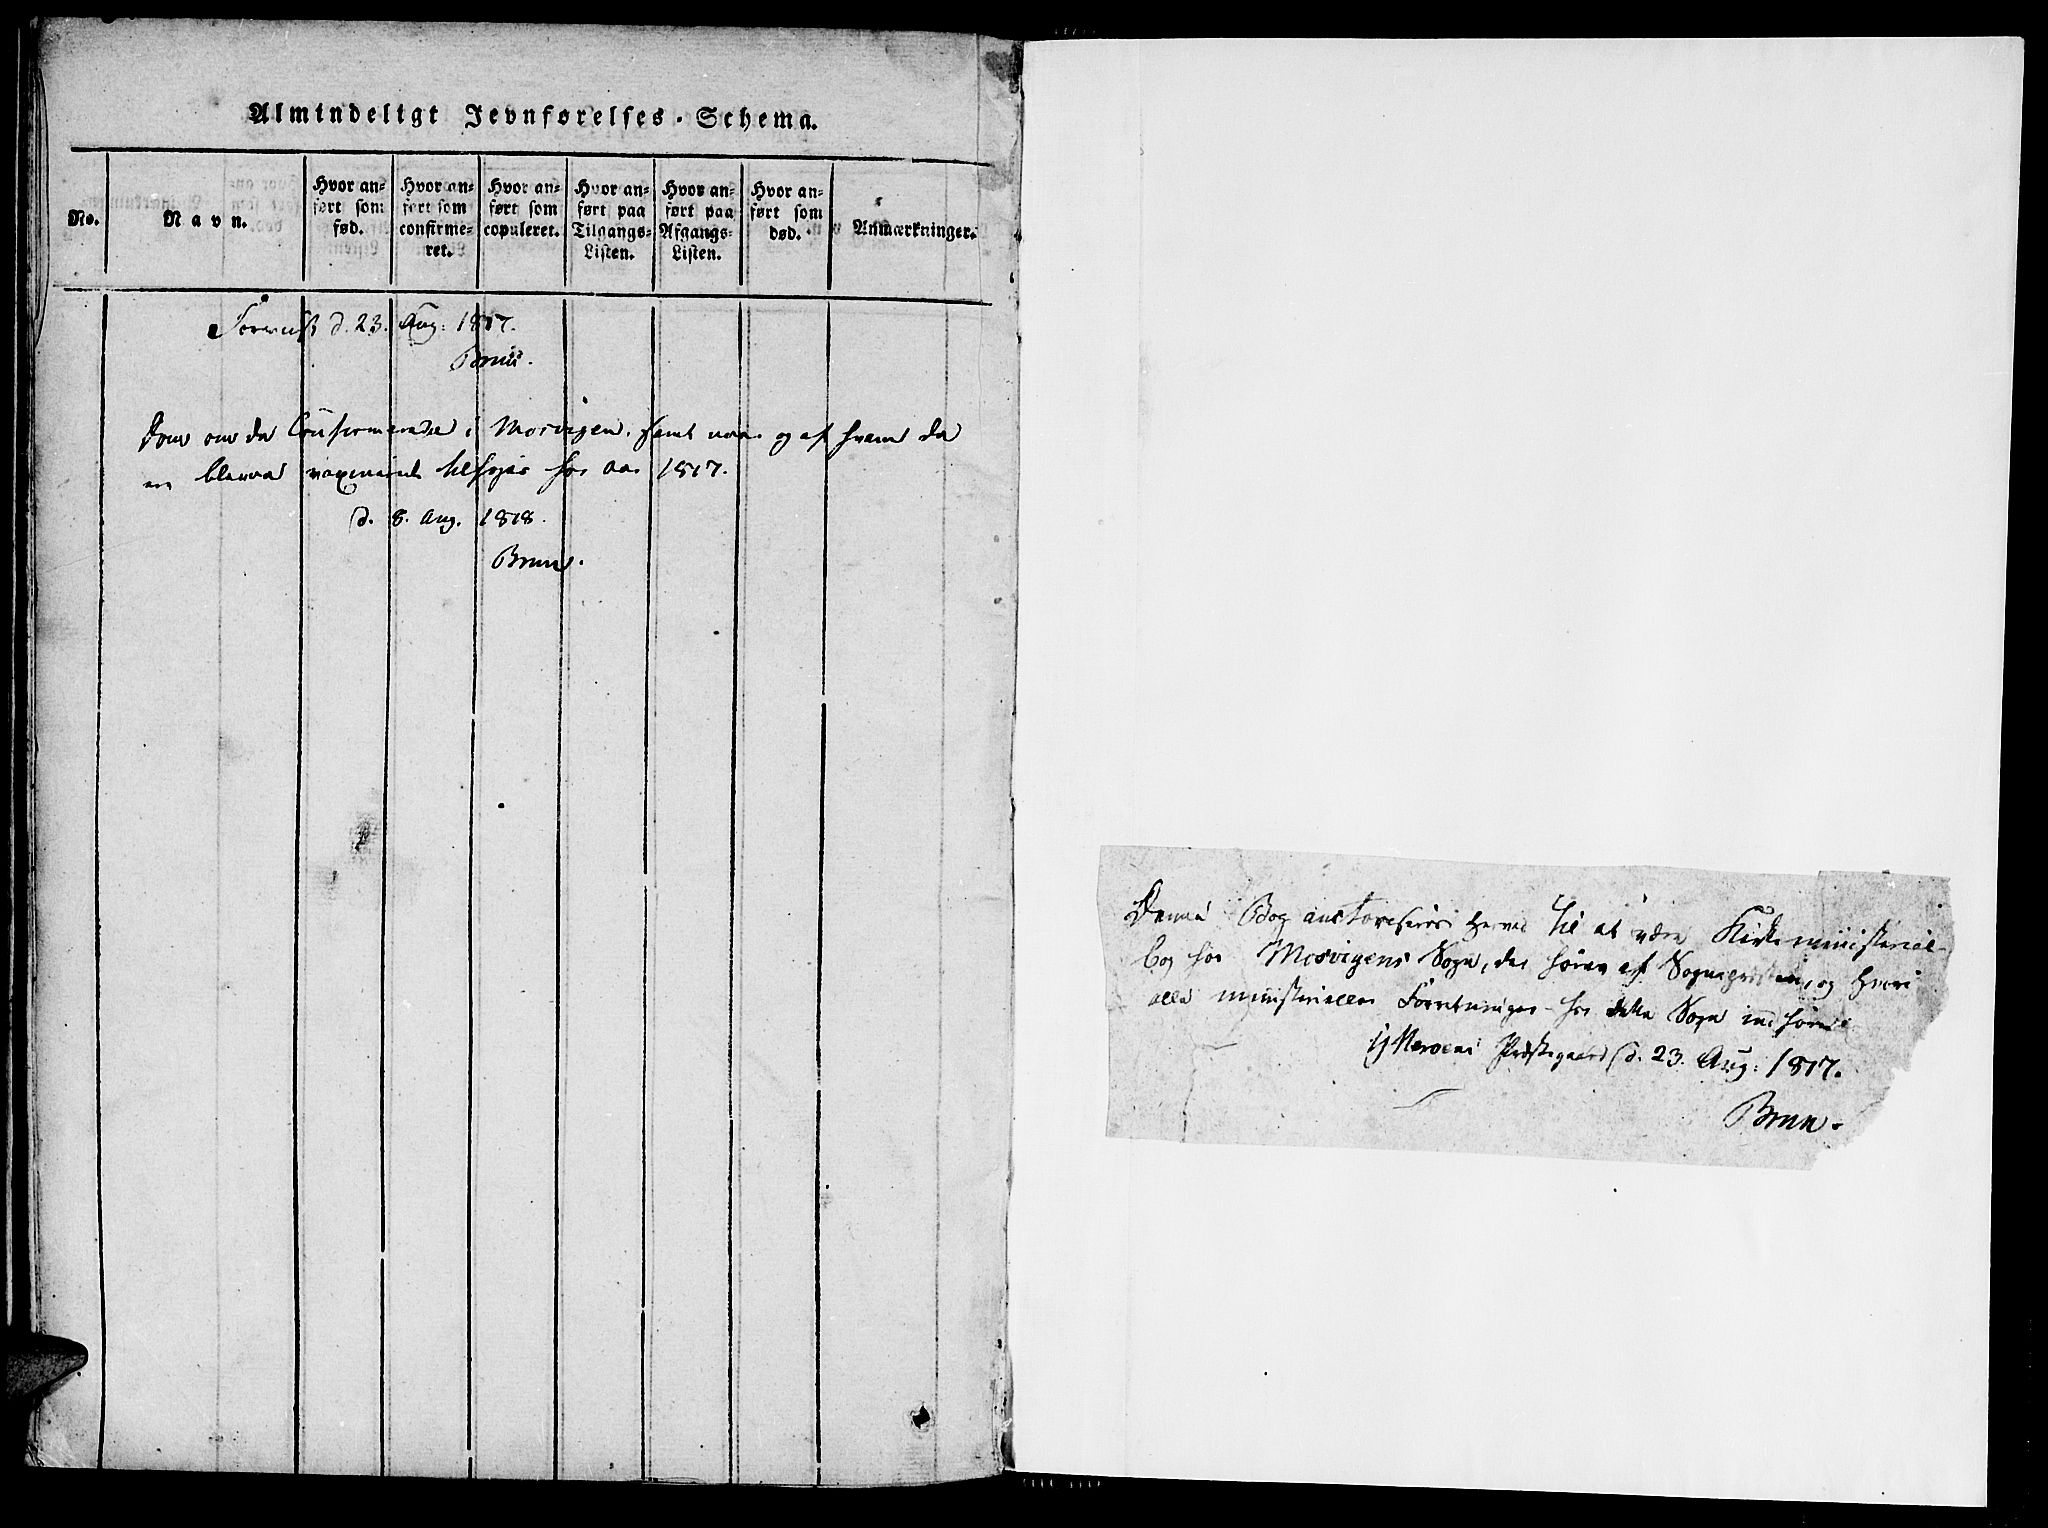 Almindeligt Jevnførelses-Schema.
No.
Navn.
Hvor an-
ført som
fød.
Hvor an-
ført som
confirme-
ret.
Hvor an-
ført som
copuleret.
Hvor an-
ført paa
Tilgangs-
Listen.
Hvor an-
ført paa
Afgangs-
Listen.
Hvor an-
ført som
død.
Anmærkninger.
d. 23. Aug: 1817.
Brun.
om de Confirmerede i Mosvigen, samt naar og af hvem de
ere blevne vaxinerede tilføjes for Aar 1817.
d. 8. Aug. 1818.
Brun.
Denne Bog authoriseres herved til at være Kirke ministerial-
bog for Mosvigens Sogn, der føres af Sognepræsten, og hvori
alle ministerielle Forretninger for dette Sogn indføres
Ytterøens Præstegaard d. 23. Aug: 1817.
Brun.